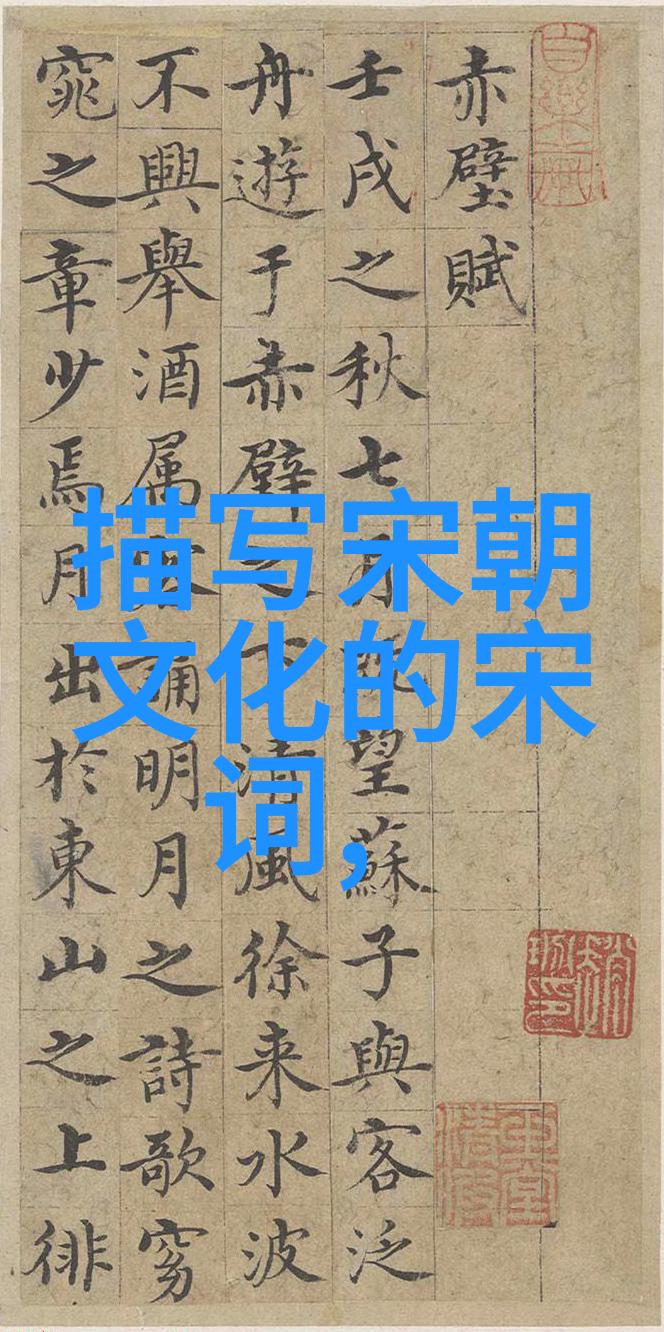 赤壁賦
壬戌之秋七月既望蘇子與客泛
舟遊于赤壁之下清風徐来水波
不興舉酒属客誦明月之詩歌窈
窕之章少焉月出於東山之上徘
描写宋朝
文化的宋
词,